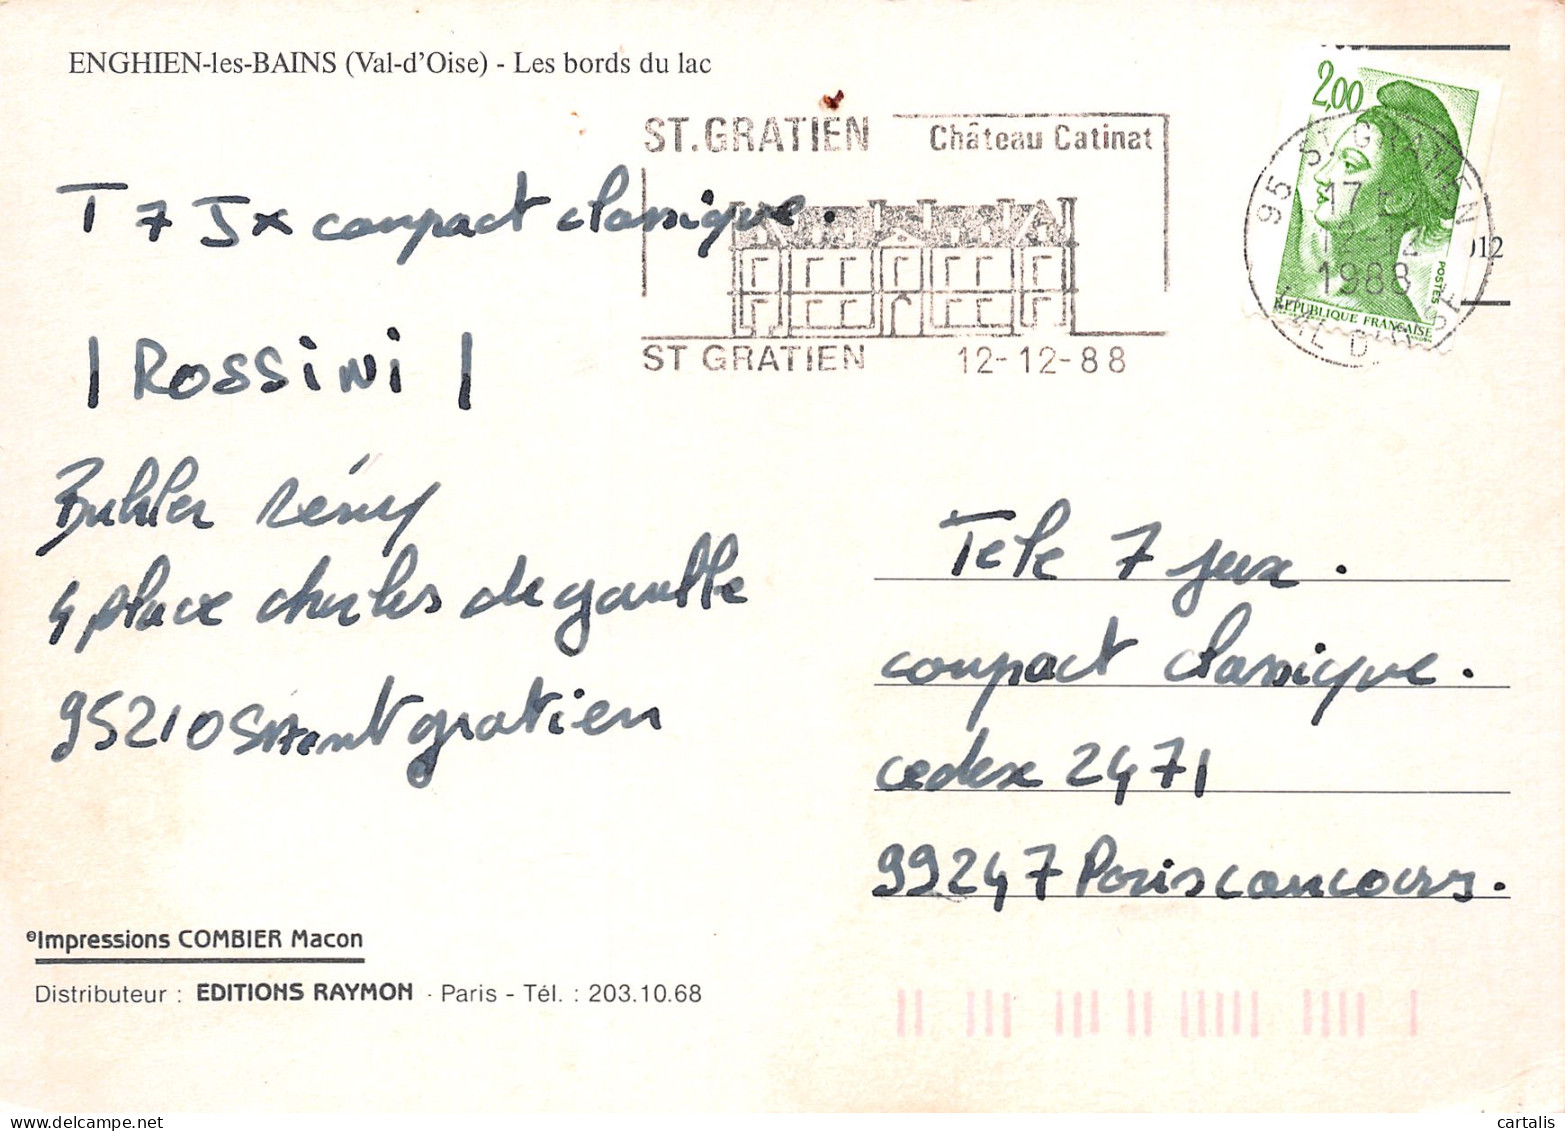 ENGHIEN-les-BAINS (Val-d'Oise) - Les bords du lac
ST.GRATIEN Château Catinat
ST GRATIEN 12-12-88
2,00
POSTES
REPUBLIQUE FRANÇAISE
95 ST GRATIEN
17
12-12
1988
VAL D'OISE
012
T 7 Jx compact classique.
| ROSSiNi |
Buhler rémy
4 place charles de gaulle
95210 Saint gratien
Tele 7 jeux.
compact classique.
cedex 2471
99247 Paris concours.
Impressions COMBIER Macon
Distributeur : EDITIONS RAYMON - Paris - Tél. : 203.10.68
cartalis